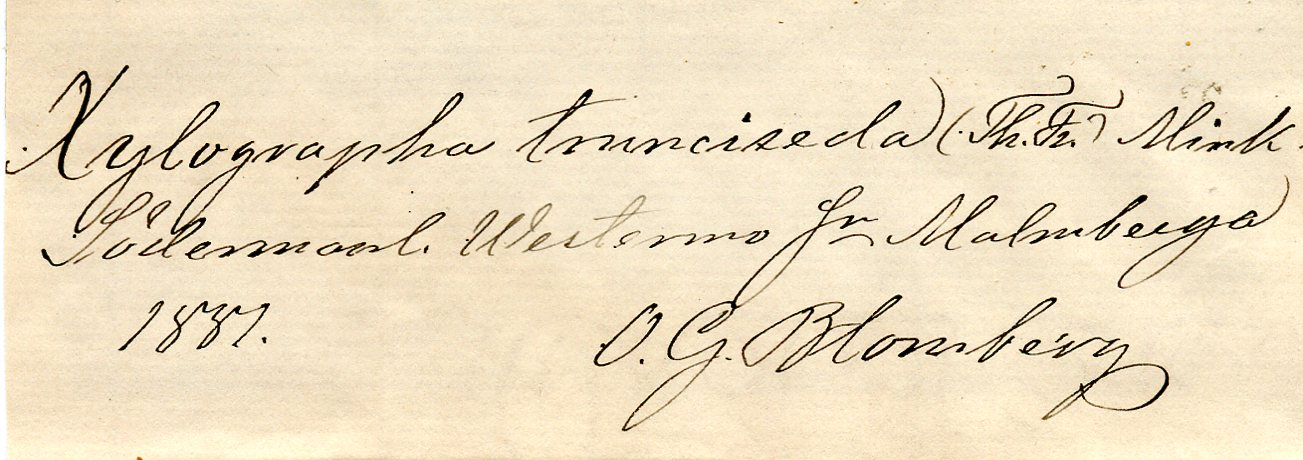 Xylographa trunciseda (Th. Fr.) Mink.
Södermanl. Westermo fr Malmberga
1881. O. G. Blomberg